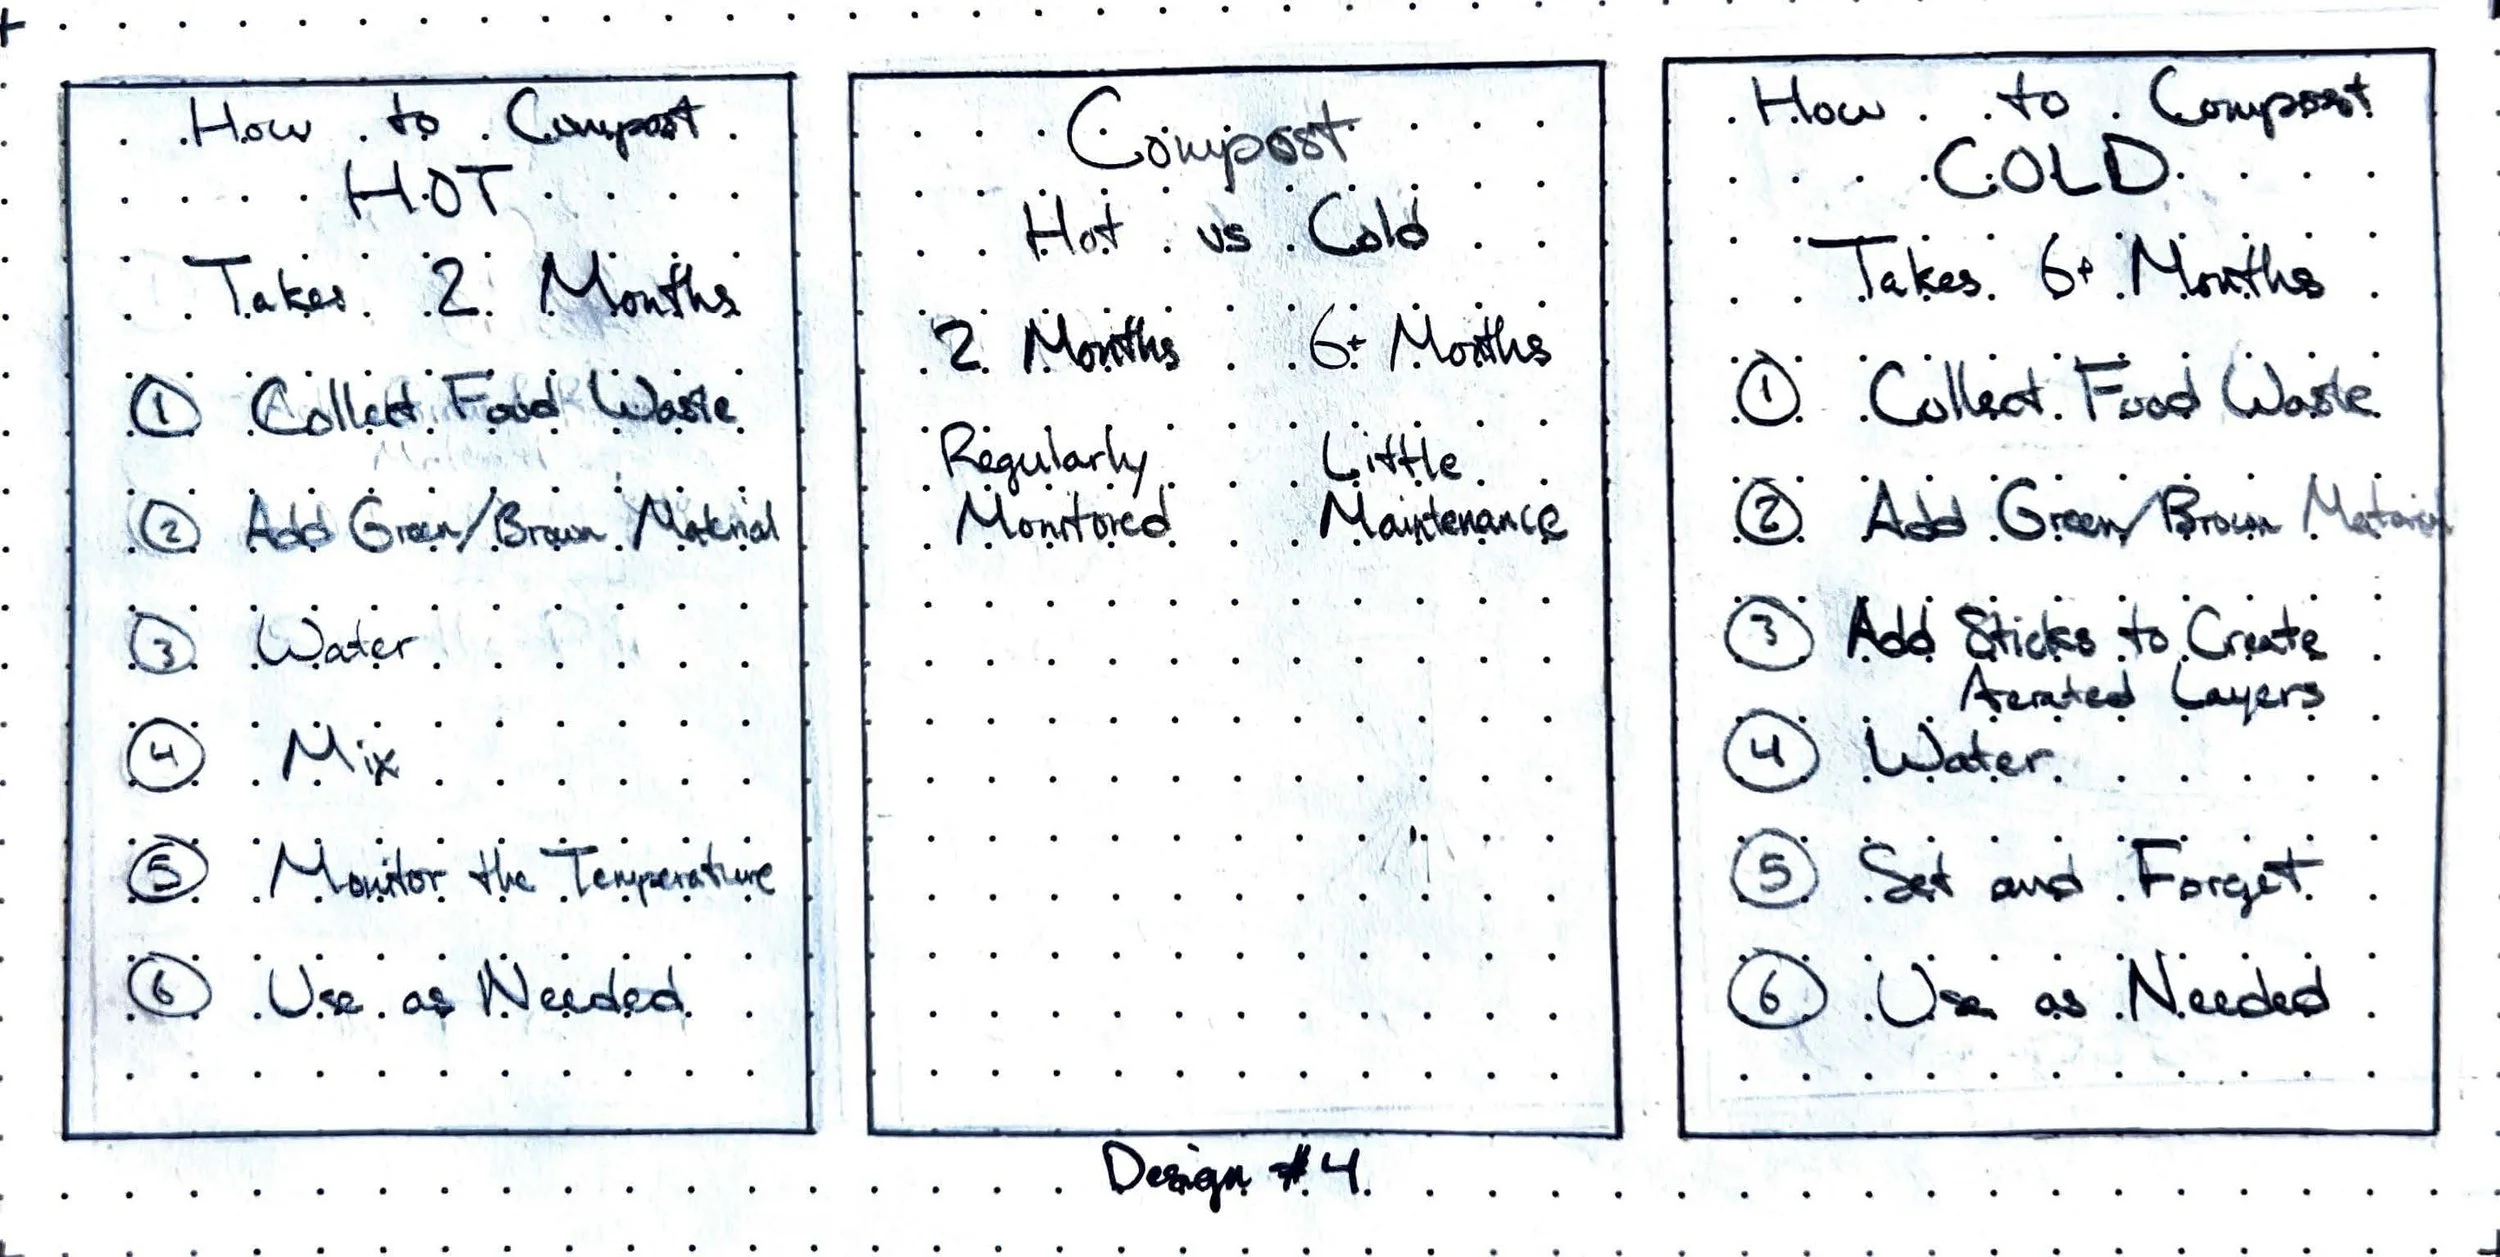 How to Compost
HOT
Takes 2 Months
① Collect Food Waste
② Add Green/Brown Material
③ Water
④ Mix
⑤ Monitor the Temperature
⑥ Use as Needed
Compost
Hot vs Cold
2 Months 6+ Months
Regularly Little
Monitored Maintenance
How to Compost
COLD
Takes 6+ Months
① Collect Food Waste
② Add Green/Brown Material
③ Add Sticks to Create
Aerated Layers
④ Water
⑤ Set and Forget
⑥ Use as Needed
Design #4